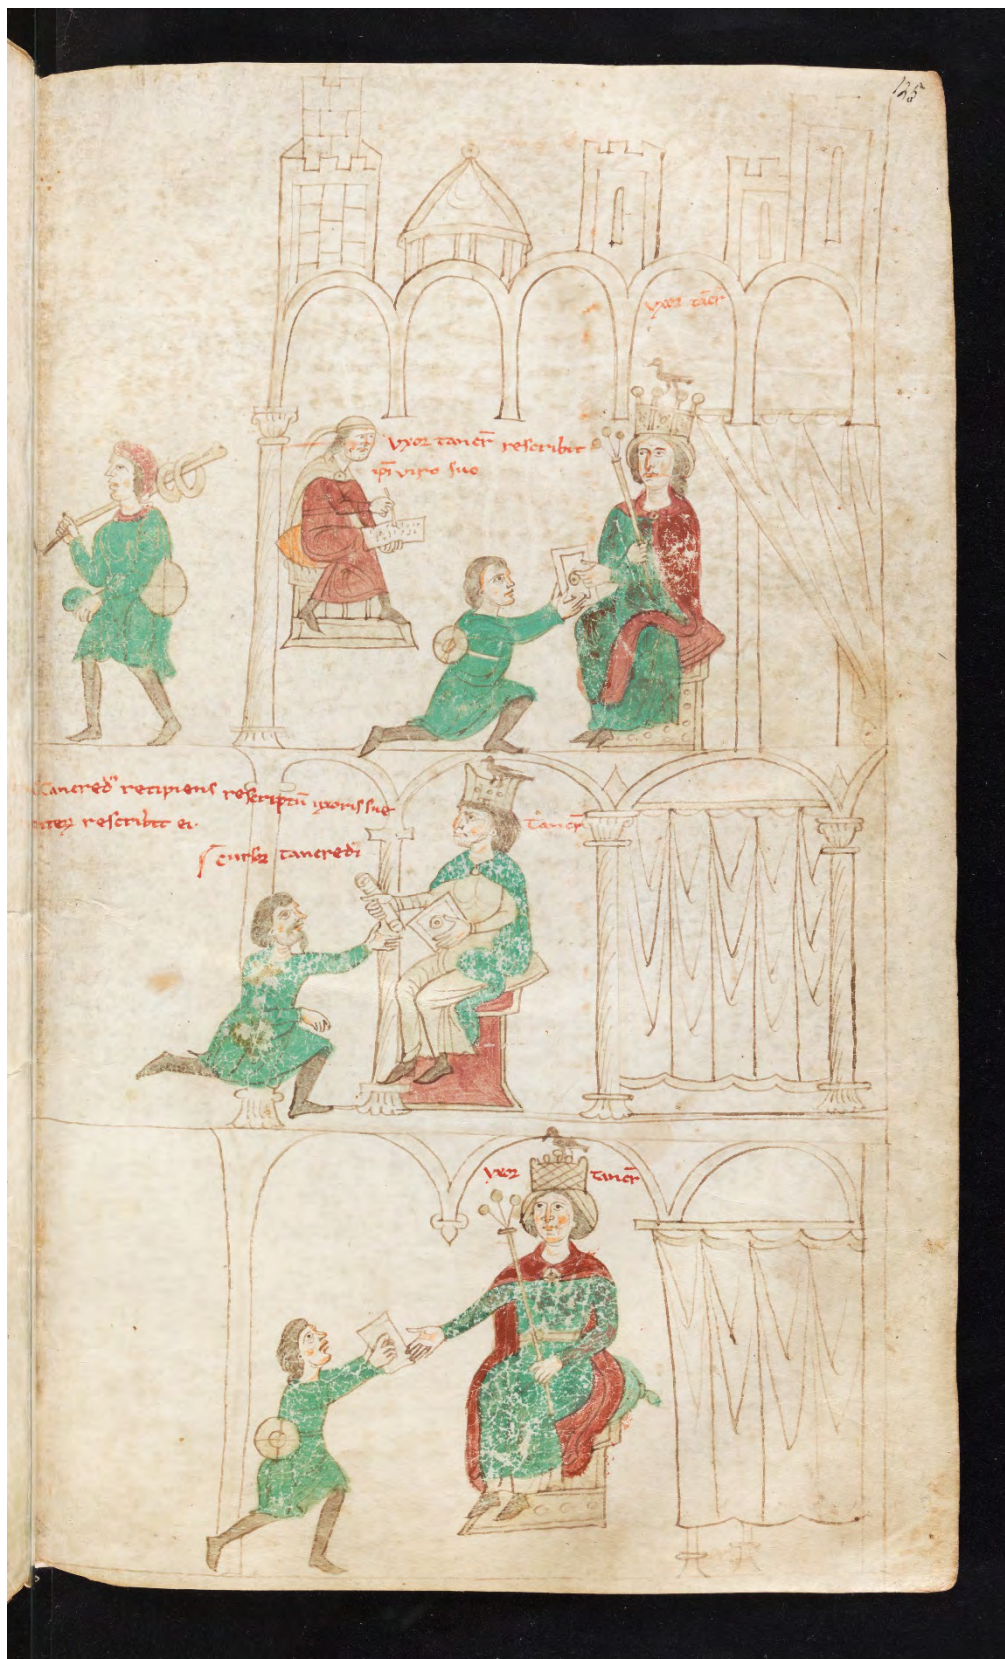 125
uxor tācr̄
Uxor tancr̄ rescribit
ip̄i viro suo
Tancred' recipiens rescriptū uxoris sue
iteɼ rescribit ei.
Tancr̄
Cursor tancredi
uxor tancr̄